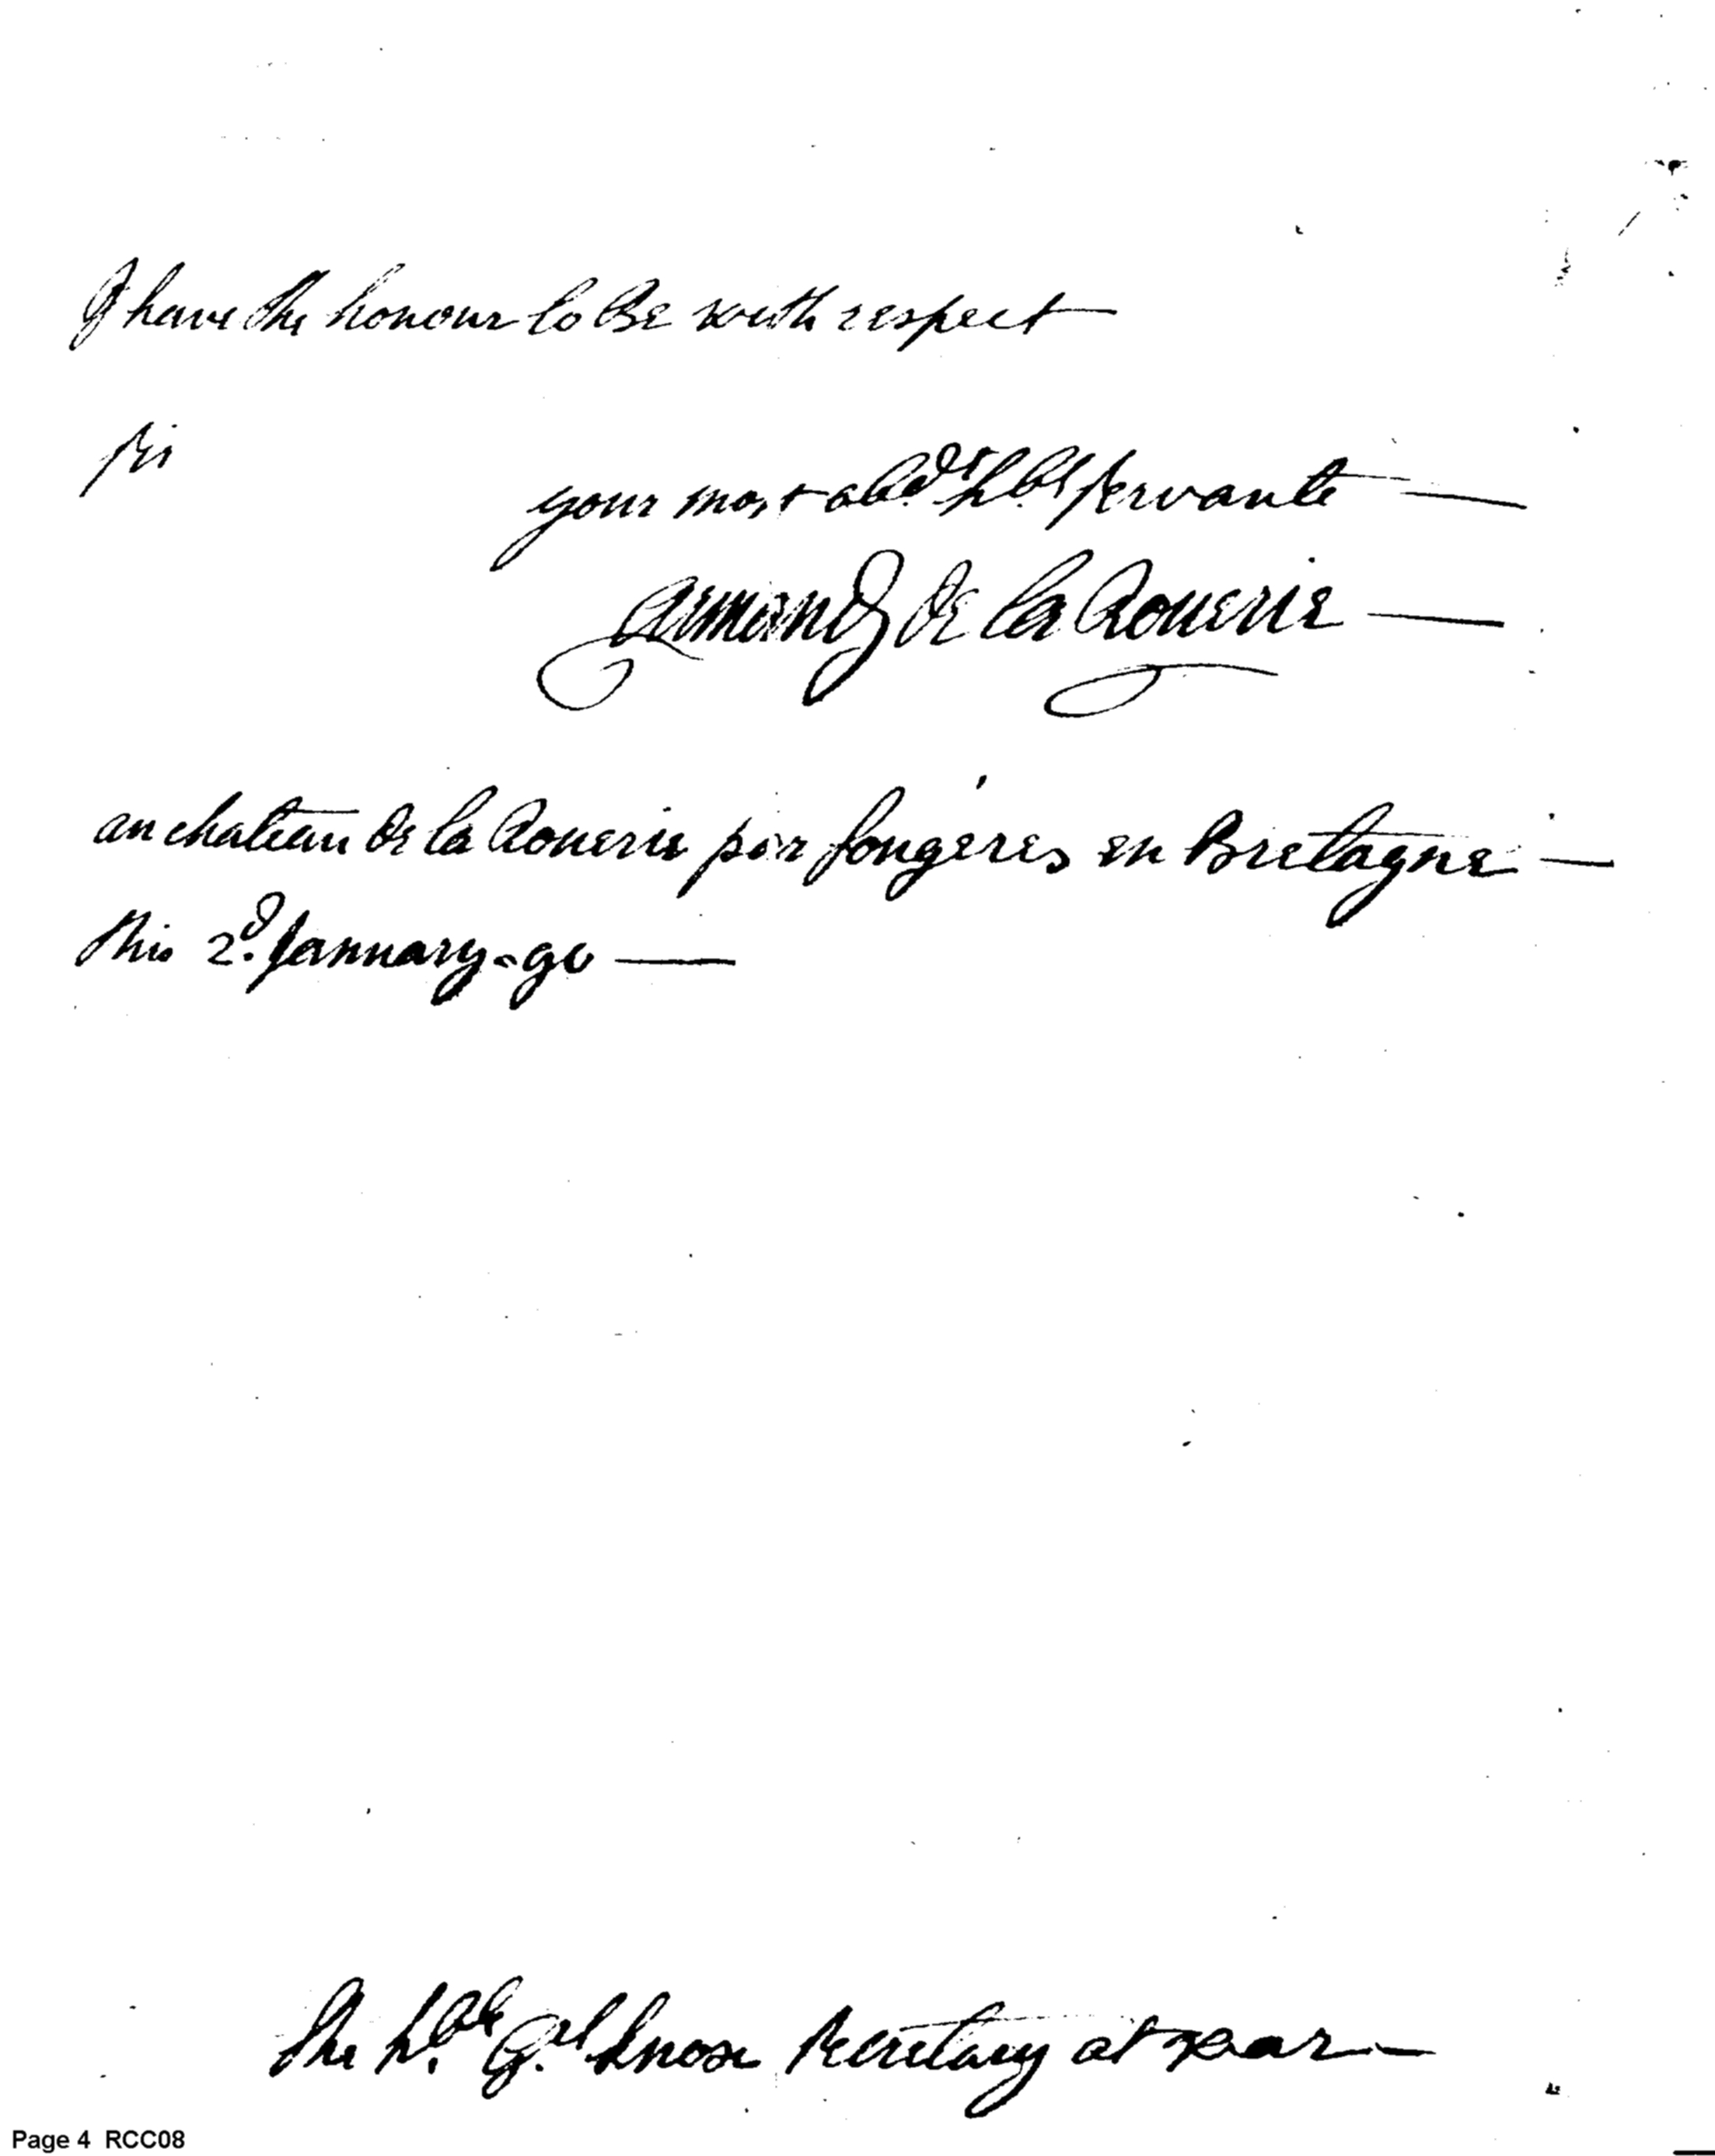 I have the honour to be with respect
sir
your most obed.t h.bl servante
armand de la Rouerie
au chateau de la Rouerie par fougéres en Bretagne
this 2.d January-90
the h.ble G.al knox secretary at war
Page 4 RCC08